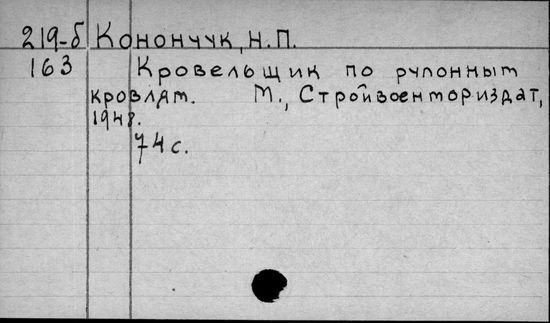 219-б Конончук, Н.П.
163 Кровельщик по рулонным
кровлям. М., Стройвоенмориздат,
1948.
74 с.